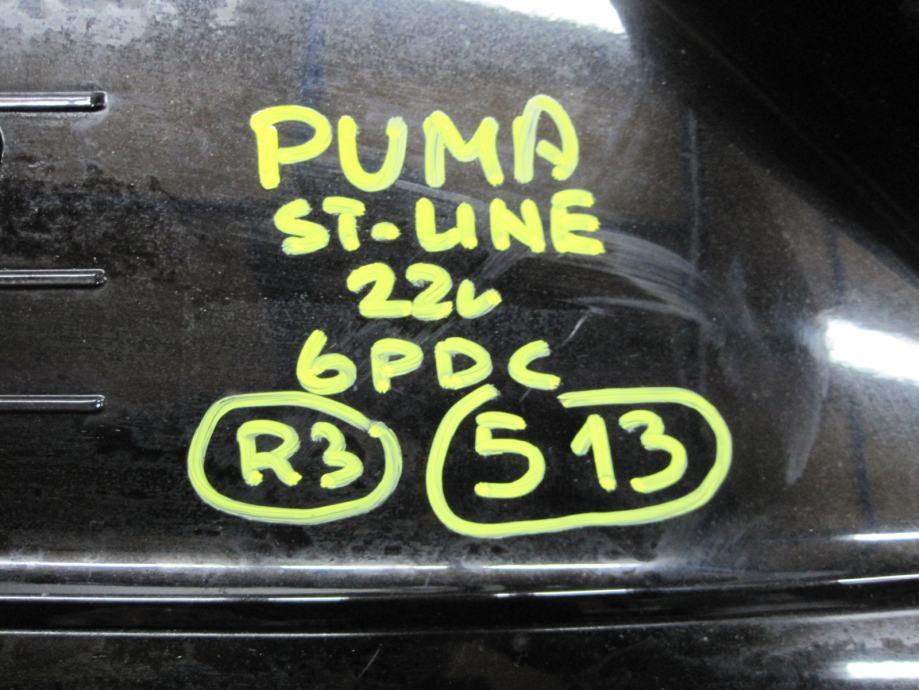 PUMA
ST-LINE
22r
6PDC
R3 513